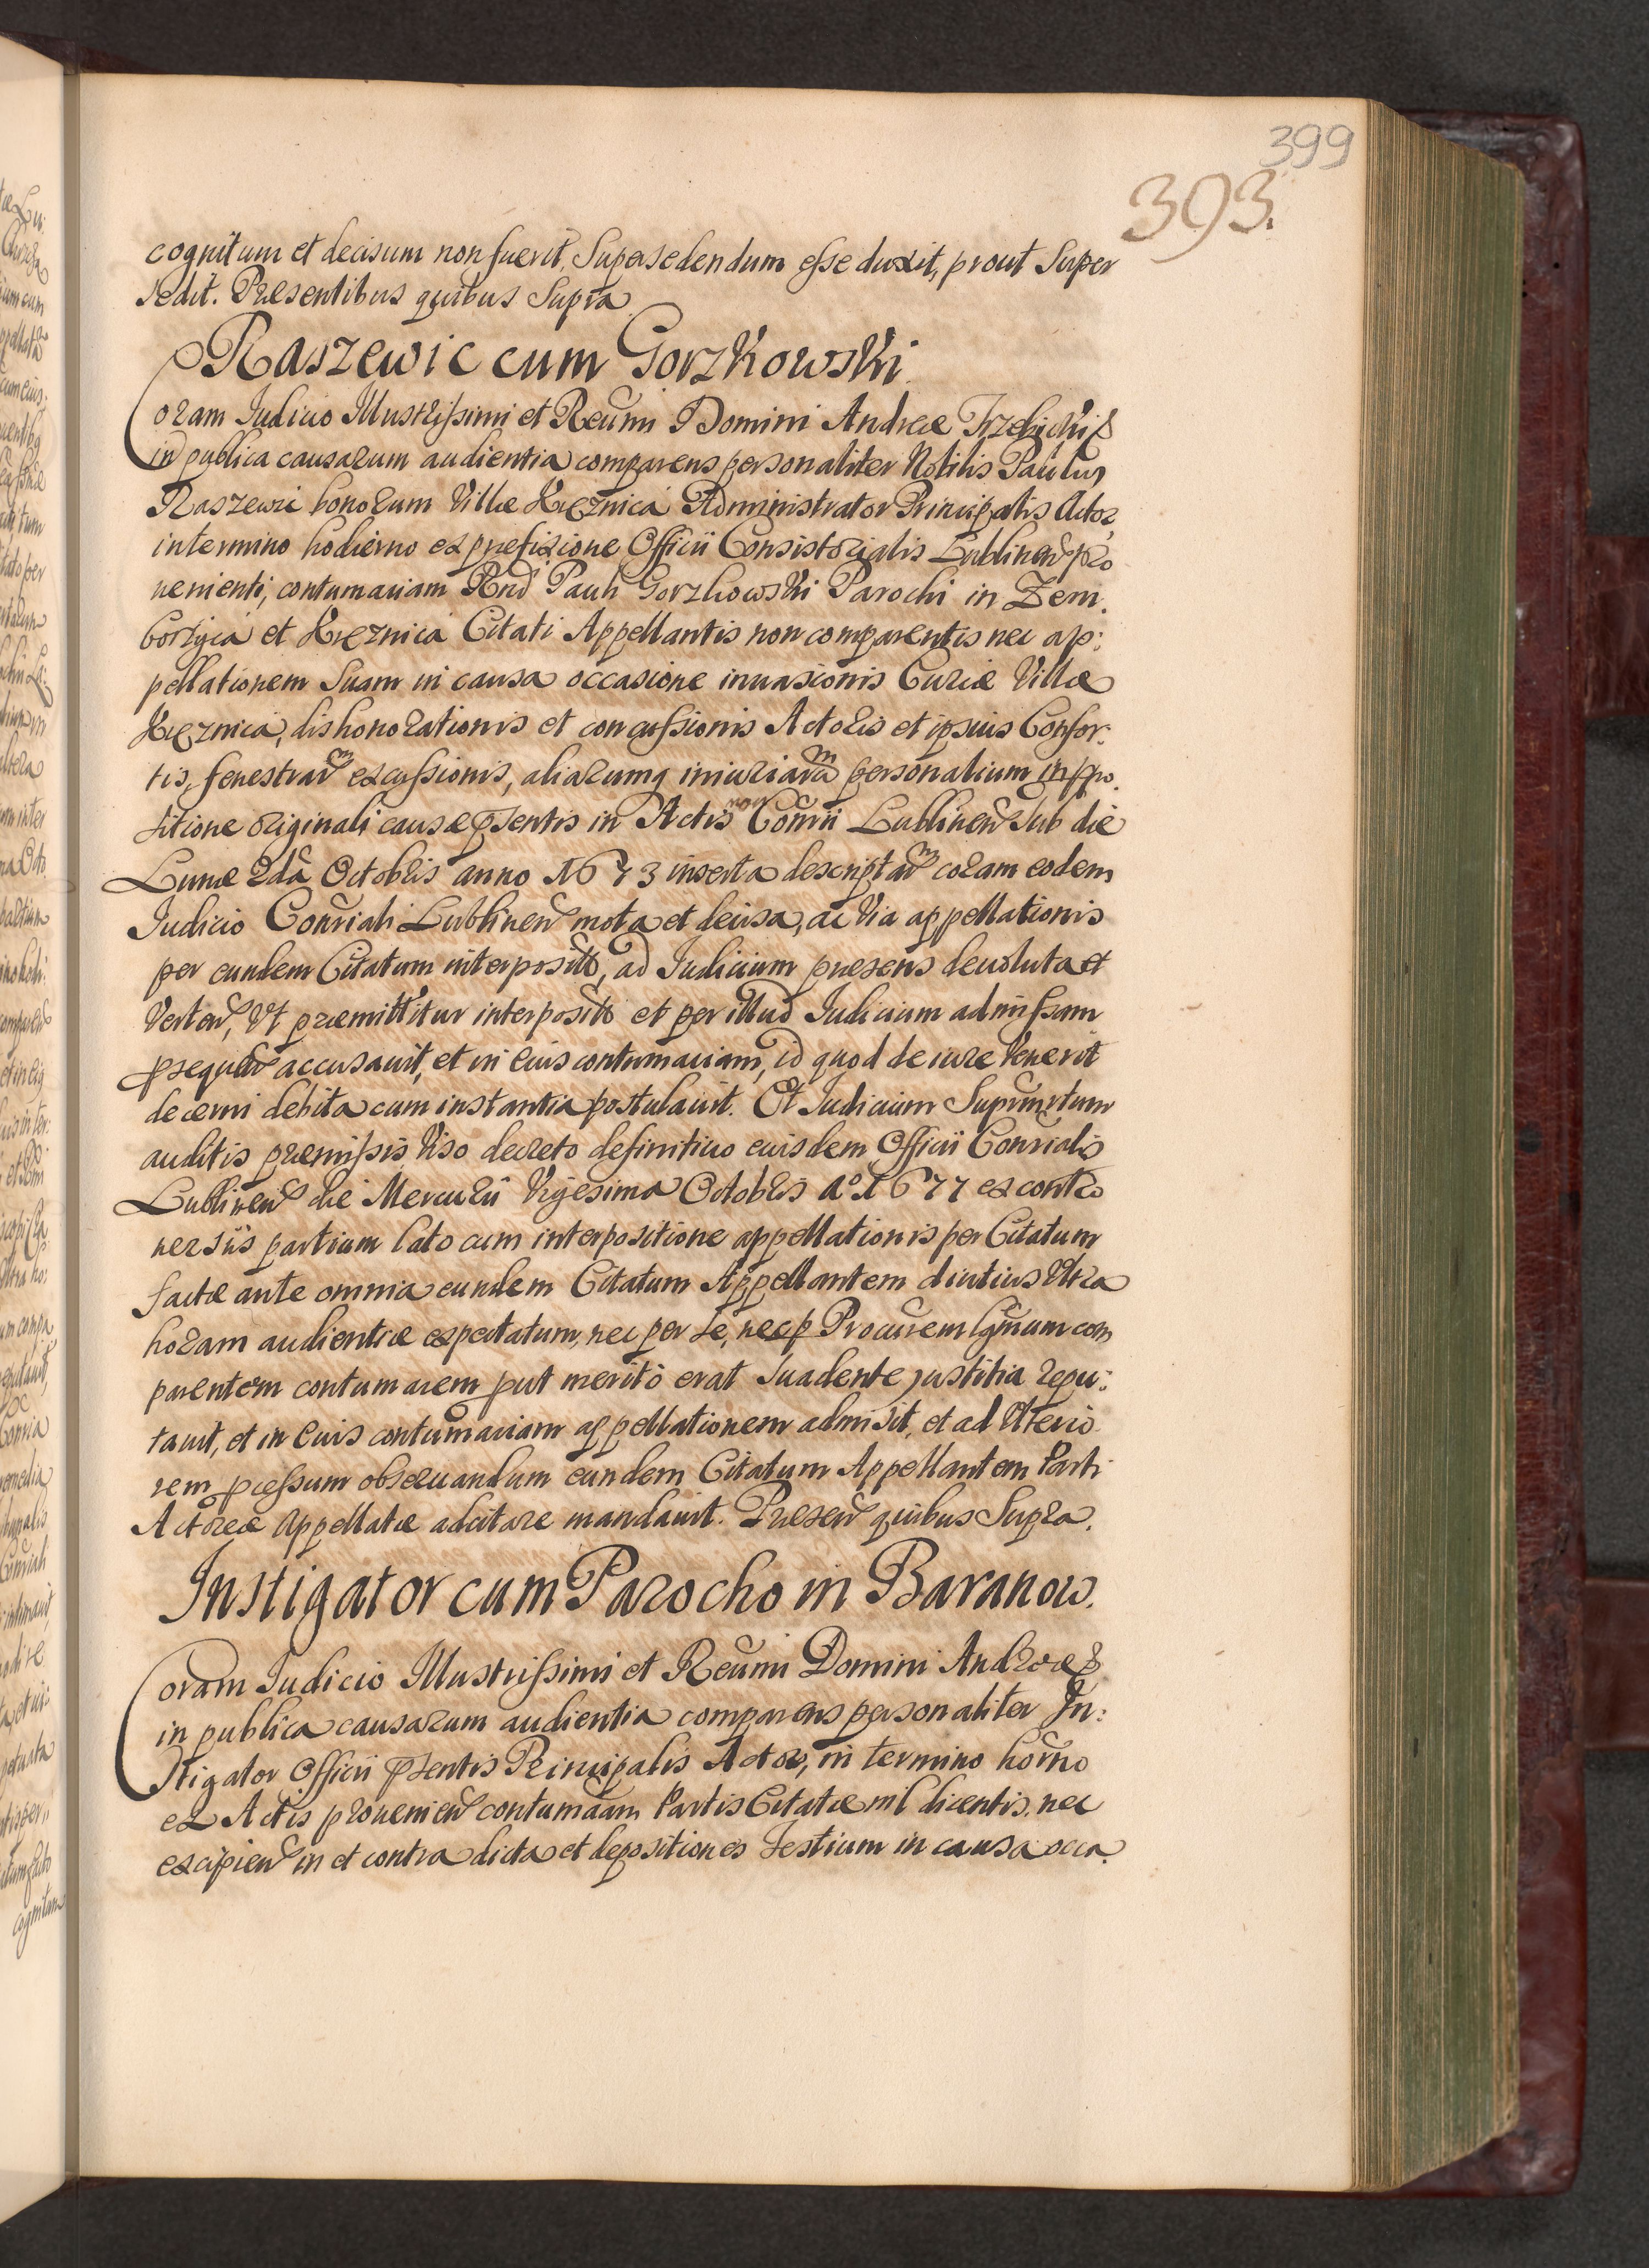 399
393.
cognitum et decisum non fuerit, Supersedendum esse duxit, prout Super
sedit. Præsentibus quibus Supra
Raszewic cum Gorzkowski.
Coram Iudicio Illustrissimi et Reũmi Domini Andreæ Trzebicki &
in publica causarum audientia comparens personaliter Nobilis Paulus
Raszewic bonorum Villæ Kręznica Administrator Principalis Actor
in termino hodierno ex prefixione Officii Consistorialis Lublinen pro
uenienti, contumaciam Rnd Pauli Gorzkowski Parochi in Zem.
borzyca et Kręznica Citati Appellantis non comparentis nec ap:
pellationem Suam in causa occasione inuasionis Curiæ Villæ
Kręznica, dishonorationis et concussionis Actoris et ipsius Consor:
tis, fenestrarm excussionis, aliarumq iniuriarm personalium in ppo.
sitione originali causæ psentis in Actis Conrii Lublinen Sub die
Lunæ 2da Octobris anno 1673 inserta descriptarm coram eodem
Iudicio Conriali Lublinen mota et decisa, ac Via appellationis
per eundem Citatum interpositæ, ad Iudicium præsens deuoluta et
Verten, Vt præmittitur interpositæ et per illud Iudicium admissam
psequen accusauit, et in eius contumaciam, id quod de iure Venerit
decerni debita cum instantia postulauit. Et Iudicium Supranrtum
auditis præmissis Viso decreto definitiuo eiusdem Officii Conrialis
Lublinen die Mercurii Vigesima Octobris Ao 1677 ex contro
uersiis partium lato cum interpositione appellationis per Citatum
factæ ante omnia eundem Citatum Appellantem diutius Vltra
horam audientiæ expectatum, nec per se, nec p Procurem lgtmum com
parentem contumacem put merito erat Suadente justitia repu:
tauit, et in eius contumaciam appellationem admisit, et ad Vlterio
rem pcessum obseruandum eundem Citatum Appellantem Parti
Actoreæ Appellatæ adcitare mandauit. Præsen quibus Supra.
Instigator cum Parocho in Baranow.
Coram Iudicio Illustrissimi et Reũmi Domini Andreæ &
in publica causarum audientia comparens personaliter In:
stigator Officii psentis Principalis Actor, in termino horno
ex Actis prouenien contumaciam Partis Citatæ nil dicentis, nec
excipien in et contra dicta et depositiones Testium in causa occa.